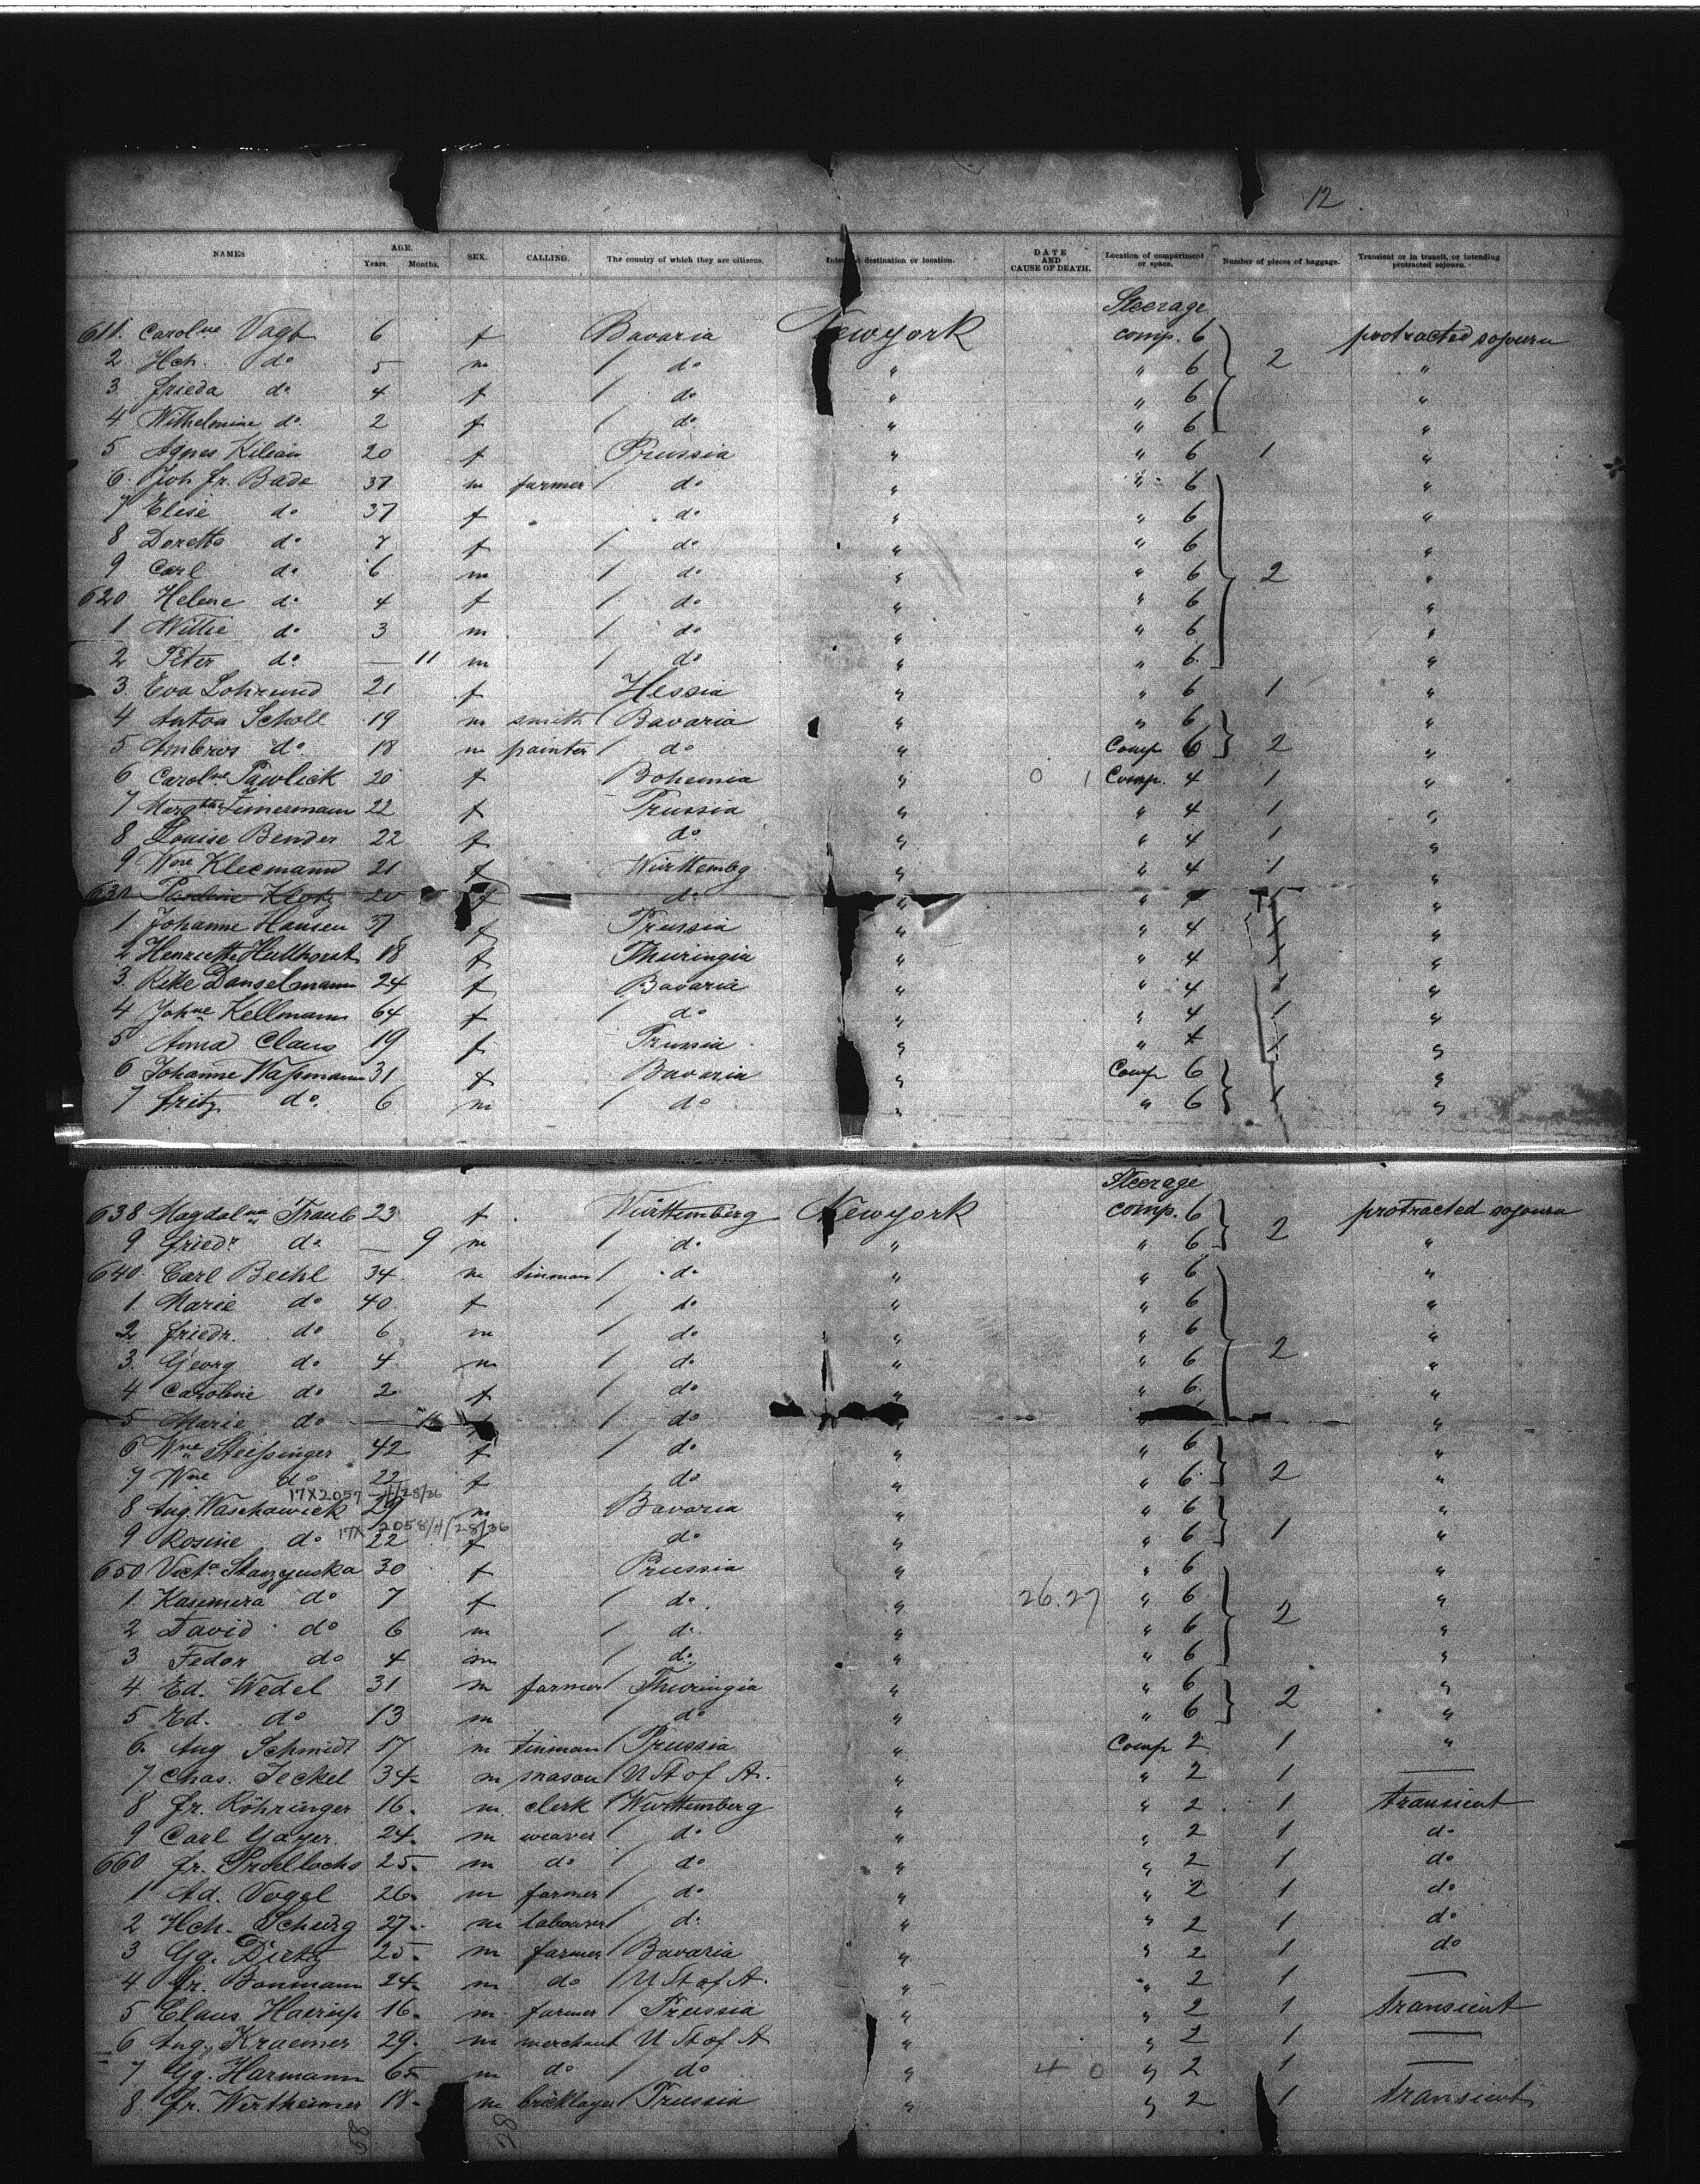 12
NAMES AGE. Years. Months. SEX. CALLING. The country of which they are citizens. destination or location. DATE AND CAUSE OF DEATH. Location of compartment or space. Number of pieces of baggage. Transient or in transit, or intending protracted sojourn.
Steerage
611. Carolne Vagt 6 f Bavaria Newyork comp. 6 protracted sojourn
2. Hch. do 5 m / do " " 6 2 "
3 Frieda do 4 f / do " " 6 "
4 Wilhelmine do 2 f / do " " 6 "
5 Agnes Kilian 20 f Prussia " " 6 1 "
6. Joh fr. Bade 37 m farmer / do " " 6 "
7 Elise do 37 f do " " 6 "
8 Dorette do 7 f / do " " 6 "
9 Carl do 6 m / do " " 6 2 "
620 Helene do 4 f / do " " 6 "
1 Willie do 3 m / do " " 6 "
2 Peter do — 11 m / do " " 6 "
3. Eva 21 f Hessia " " 6 1 "
4 Anton Scholl 19 m smith / Bavaria " " 6 "
5 Ambros do 18 m painter / do " Comp 6 2 "
6 Carolne Pawlick 20 f Bohemia " 0 1 Comp. 4 1 "
7 Margthe Zimermann 22 f Prussia " " 4 1 "
8 Louise Bender 22 f do " " 4 1 "
9 Wne Kleemann 21 f Württembg " " 4 1 "
630 Pauline Klotz 20 f do " " "
1 Johanne Hansen 37 f Prussia " " 4 1 "
2 Henriette Hullhorst 18 f Thuringia " " 4 1 "
3. Rike Danselmann 24 f Bavaria " " 4 1 "
4 Johne Kellmann 64 f / do " " 4 1 "
5 Anna Claus 19 f Prussia " " 4 1 "
6 Johanne Waßmann 31 f Bavaria " Comp 6 "
7 Fritz do. 6 m / do " " 6 1 "
Steerage
638 Magdalna Traub 23 f Württemberg Newyork comp. 6 protracted sojourn
9 Friedr do — 9 m / do " " 6 2 "
640 Carl Beihl 34 m tinman / do " " 6 "
1. Marie do 40 f / do " " 6 "
2 Friedr. do 6 m / do " " 6 "
3. Georg do 4 m / do " " 6 2 "
4 Caroline do 2 f / do " " 6 "
5 Marie do — / do " " "
6 Wne Steißinger 42 f / do " " 6 "
7 Wne do 22 f do " " 6 2 "
17X2057 — 11/28/36
8 Aug. Waschawick 29 m Bavaria " " 6 "
17X 2058/11/28/36
9 Rosine do 22 f do " " 6 1 "
650 Victa Stanzynska 30 f Prussia " " 6 "
1. Kasimira do 7 f / do " 26.27 " 6 "
2 David do 6 m / do " " 6 2 "
3 Fedor do 4 m / do " " 6 "
4. Ed. Wedel 31 m farmer / Thuringia " " 6 "
5 Ed. do 13 m / do " " 6 2 "
6. Aug Schmidt 17 m tinman / Prussia " Comp 2 1 "
7 Chas. Jeckel 34 m mason / U St of A. " " 2 1 —
8 fr. Röhringer 16 m clerk / Württemberg " " 2 1 transient
9 Carl Gayer. 24 m weaver / do " " 2 1 do
660 fr. 25 m do / do " " 2 1 do
1 Ad. Vogel 26 m farmer / do " " 2 1 do
2 Hch. Schurg 27 m labourer / do " " 2 1 do
3 Gg. Dietz 25 m farmer / Bavaria " " 2 1 do
4 fr. Bonmann 24 m do / U St of A. " " 2 1 —
5 Claus Haerup 16 m farmer / Prussia " " 2 1 transient
6 Aug. Kraemer 29 m merchant U St of A " " 2 1 —
7 Gg. Harmann 65 m do / do " 4 0 " 2 1 —
8. fr. Wertheimer 18 m bricklayer / Prussia " " 2 1 transient